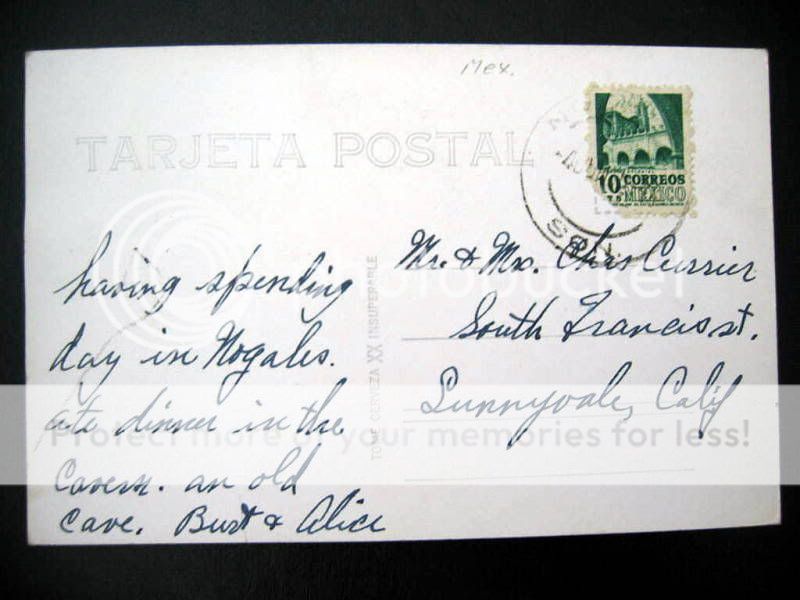 Mex.
TARJETA POSTAL
10 CORREOS
MEXICO
SON
having spending
day in Nogales.
ate dinner in the
Cavern. an old
cave. Burt & Alice
TOME CERVEZA XX INSUPERABLE
Mr. & Mrs. Chris Currier
South Francis st.
Sunnyvale, Calif
photobucket
Protect more of your memories for less!